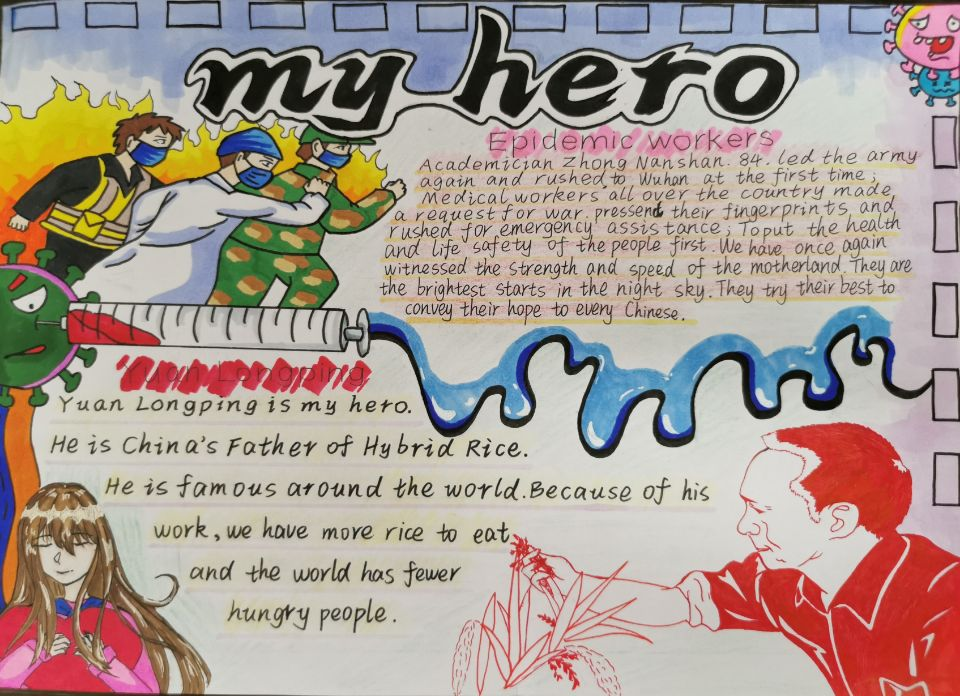 my hero
Epidemic workers
Academician Zhong Nanshan. 84. led the army
again and rushed to Wuhan at the first time;
Medical workers all over the country made
a request for war. pressent their fingerprints and
rushed for emergency assistance; Toput the health
and life safety of the people first. We have once again
witnessed the strength and speed of the motherland. They are
the brightest starts in the night sky. They try their best to
convey their hope to every Chinese.
Yuan Longping
Yuan Longping is my hero.
He is China's Father of Hybrid Rice.
He is famous around the world. Because of his
work, we have more rice to eat
and the world has fewer
hungry people.